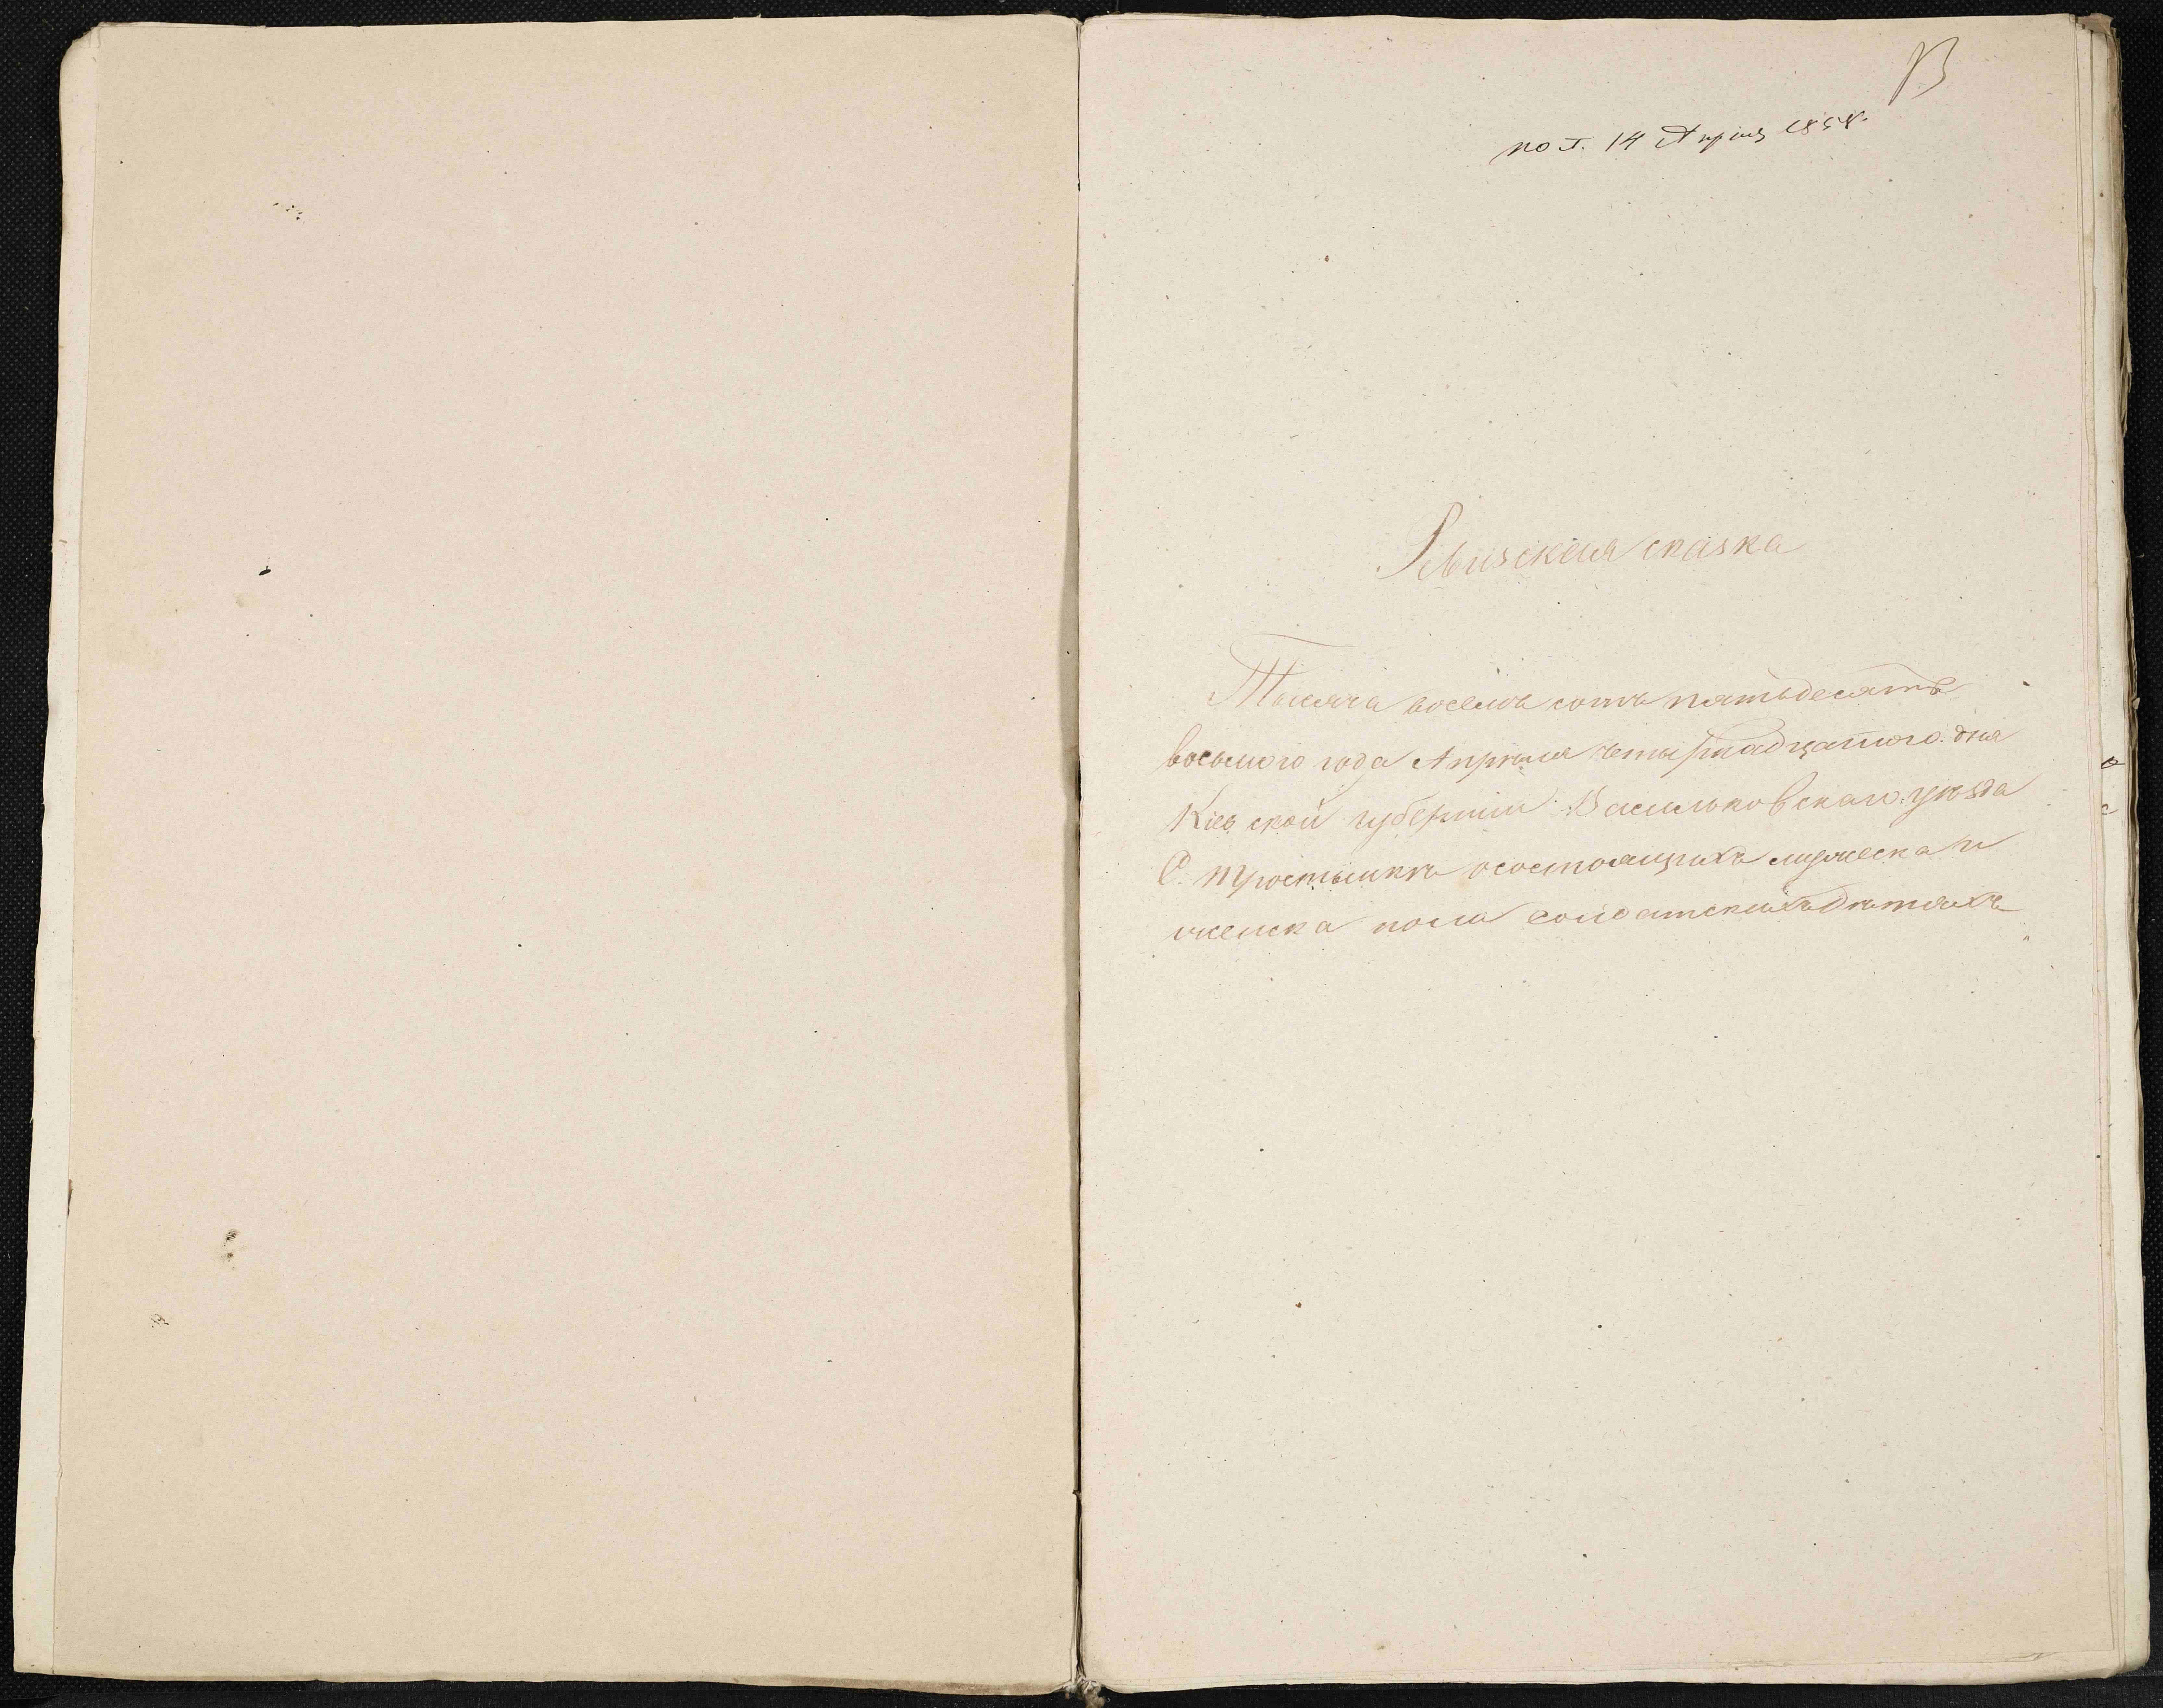 В
пол. 14 Апрѣля 1858.
Ревизская сказка
Тысяча восемь сотъ пятьдесятъ
восьмого года Апрѣля четырнадцатого дня
Кіевской губерніи Васильковскаго уѣзда
С. Тростынки осостоящихъ мужеска и
женска пола солдатскихъ дѣтяхъ